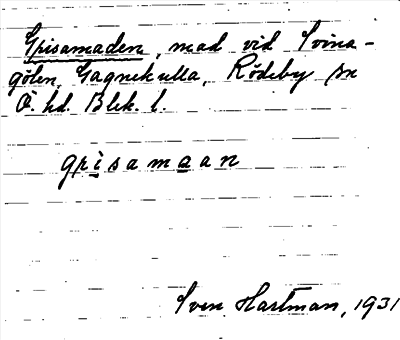 Gpisamaden, mad vid Svina-
gölen, Gagnekulla, Rödeby sn
Ö. hd. Blek. l.
gpisamaan
Sven Hartman, 1931